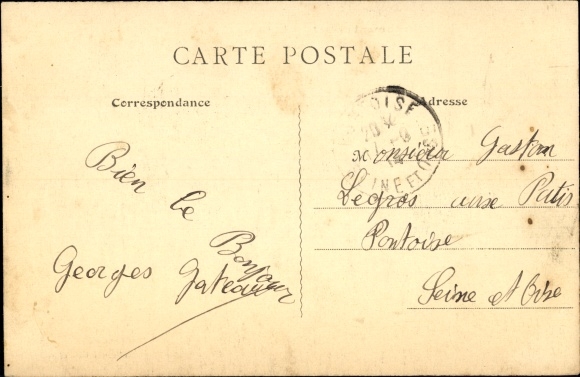 CARTE POSTALE
Correspondance
Adresse
Bien le
Bonjour
Georges Gateau
OISE
SEINE ET OISE
Monsieur Gaston
Legros aux Patis
Pontoise
Seine et Oise